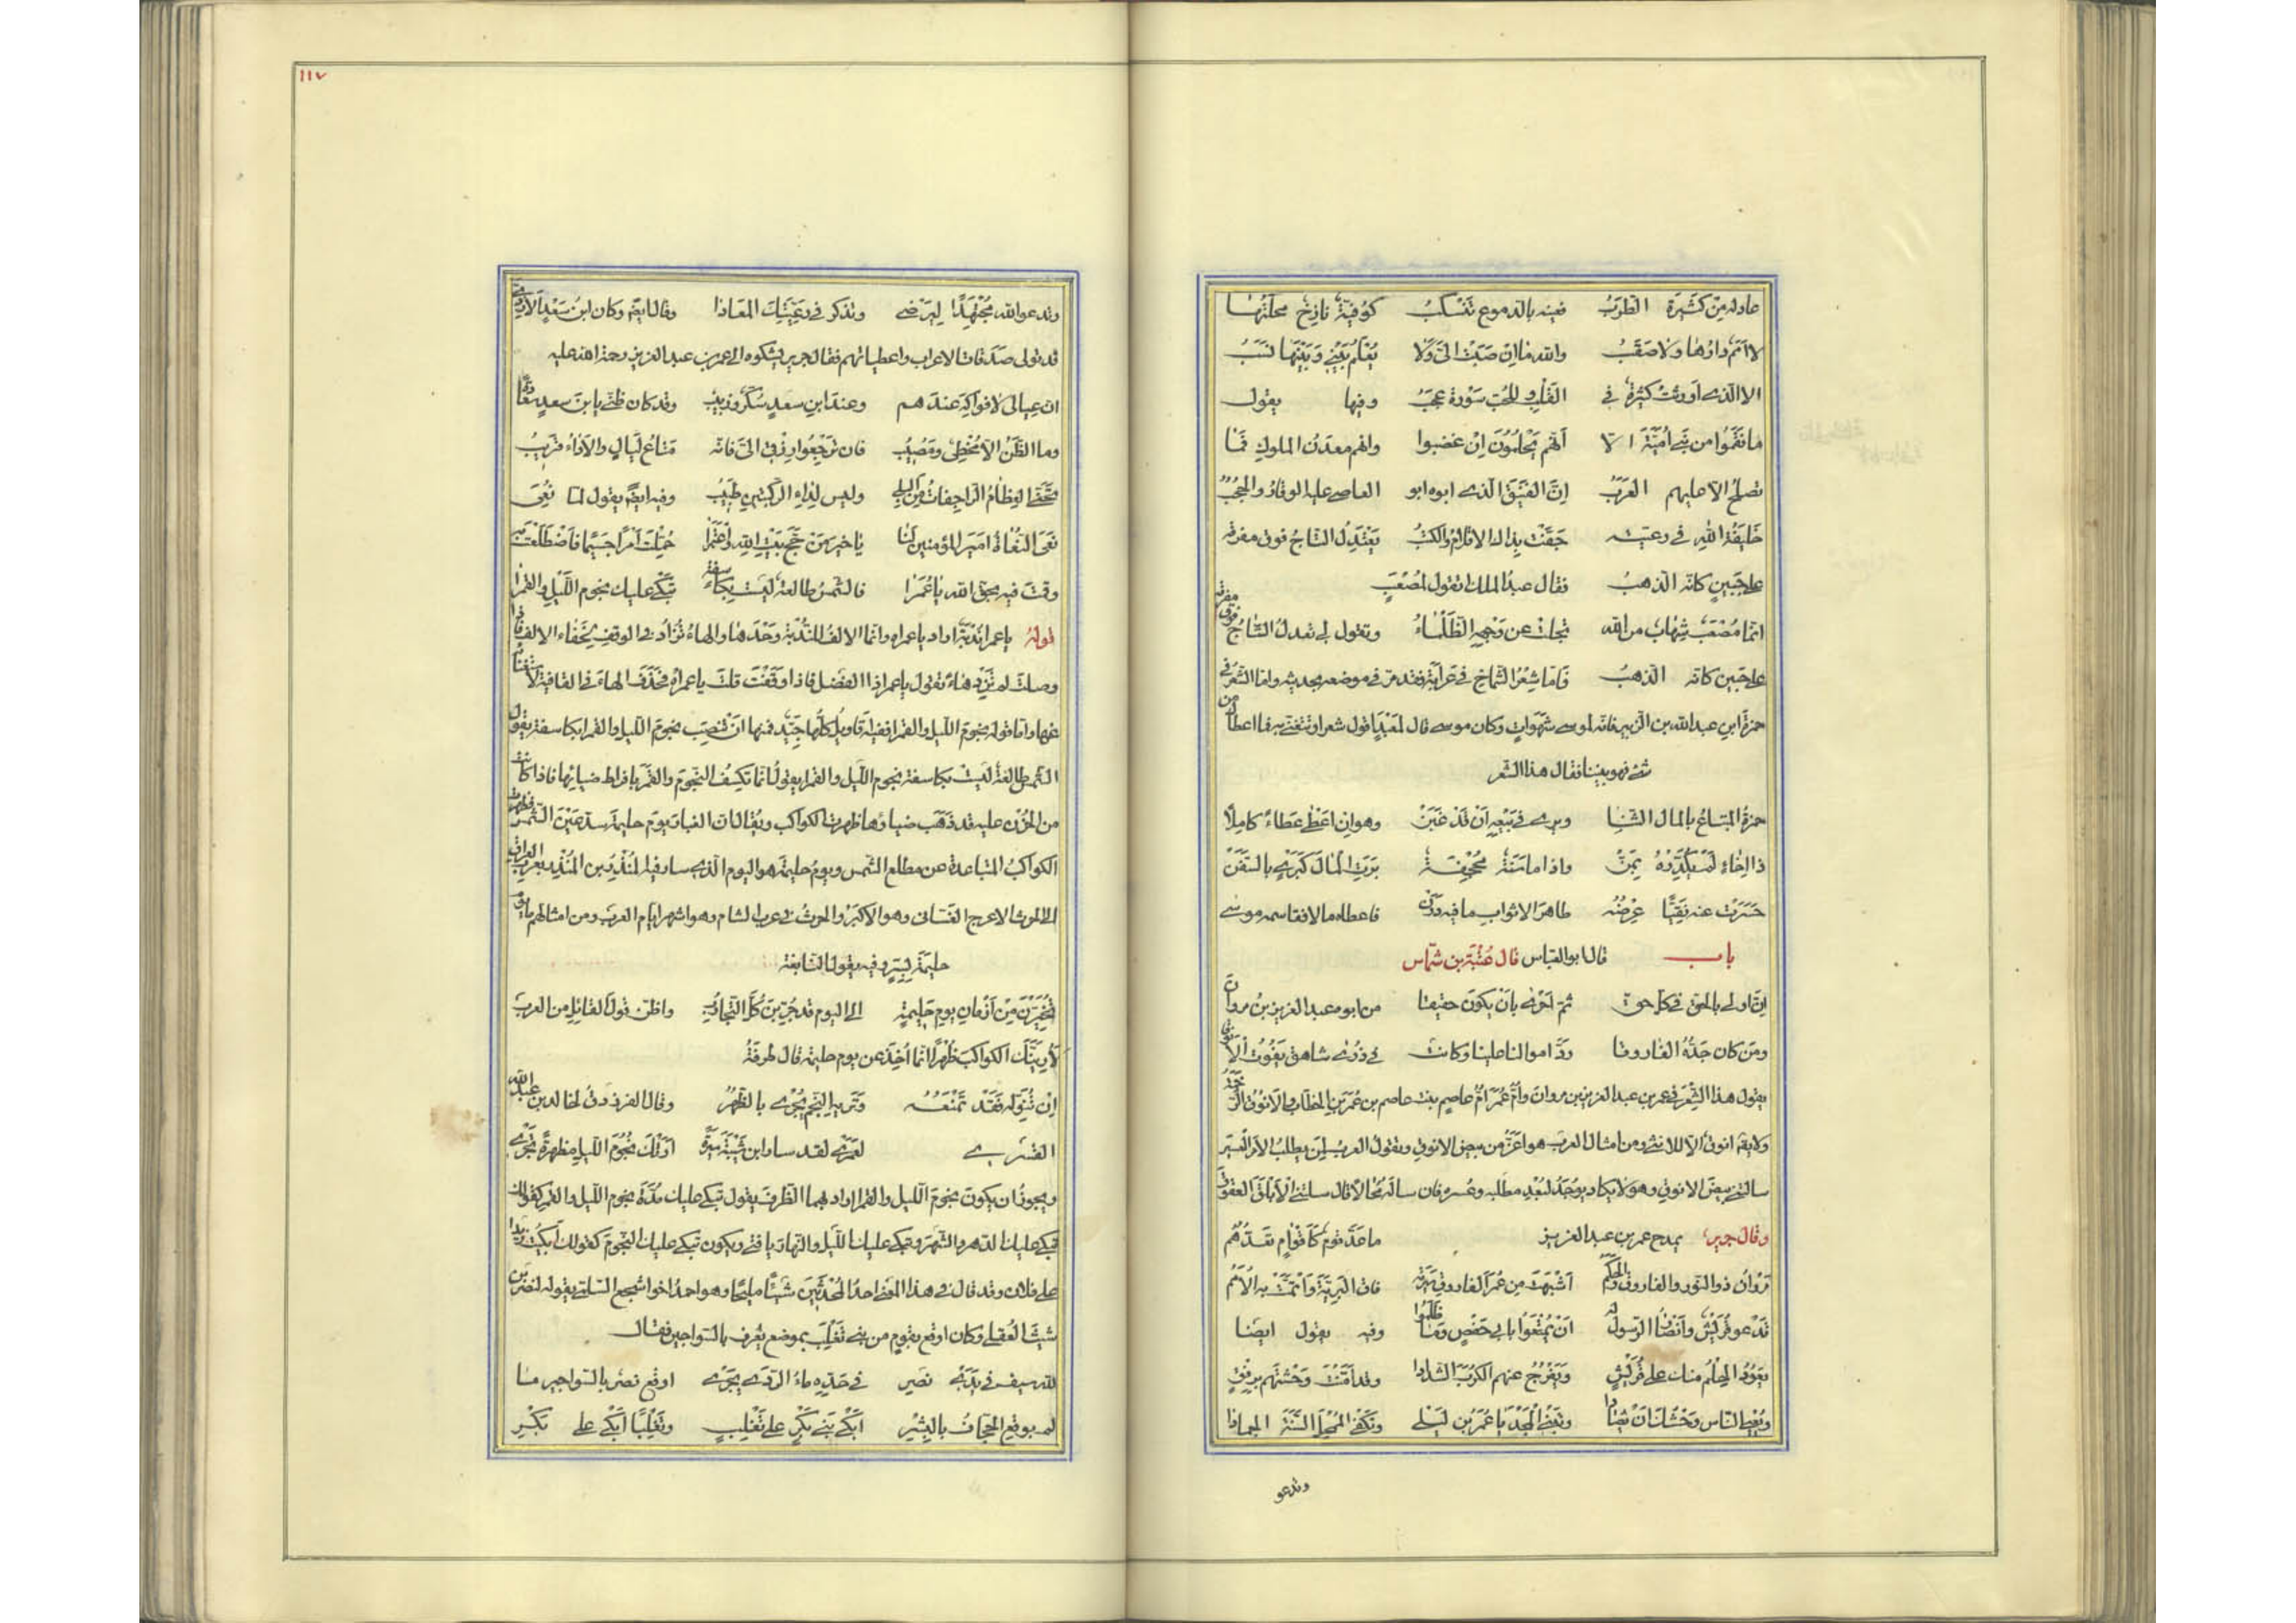 عاد له من كثيرة الطرب فعينه بالدموع تنسكب كوفية نازح محلتها
لا أمم دارها ولا صقب والله ما إن صبت إلي ولا يعلم بيني وبينها نسب
الا الذي أورثت كثيرة في القلب وللحب سورة عجب وفيها يقول
ما نقموا من بني أمية الا أنهم يحلمون إن غضبوا وانهم معدن الملوك فما
تصلح الا عليهم العرب إن الفنيق الذي ابوه ابو العاصي عليه الوقار والحجب
خليفة الله في رعيته جفت بذاك الاقلام والكتب يعتدل التاج فوق مفرقه
على جبين كانه الذهب فقال عبد الملك تقول لمصعب
انما مصعب شهاب من الله تجلت عن وجهه الظلماء وتقول لي يعتدل التاج فوق مفرقه
على جبين كانه الذهب فاما شعر الشماخ في عرابة فقد مر في موضعه بحديثه واما الشعر في
حمزة ابن عبد الله بن الزبير فانه لموسى شهوات وكان موسى قال لمعبد اقول شعرا وتتغنى به فما اعطاك من
شئ فهو بيننا فقال هذا الشعر
حمزة المبتاع بالمال الثنا ويرى في بيعه أن قد غبن وهو ان اعطى عطاء كاملا
ذا إخاء لم يكدره بمن واذا ما سنة مجحفة برت المال كبري بالسفن
حسرت عنه نقيا عرضه طاهر الاثواب ما فيه درن فاعطاه مالا فقاسمه موسى
باب قال ابو العباس قال عتبة بن شماس
إن اولى بالحق في كل حق ثم أحرى بان يكون حقيقا من ابوه عبد العزيز بن مروان
ومن كان جده الفاروقا رد اموالنا علينا وكانت في ذرى شاهق يفوت الانوقا
يقول هذا الشعر في عمر بن عبد العزيز بن مروان وام عمر ام عاصم بنت عاصم بن عمر بن الخطاب والانوق الرخمة
ولا يقـ انوق الا للانثى ومن امثال العرب هو اعز من بيض الانوق وتقول العرب لمن يطلب الامر العسير
سالتني بيض الانوق وهو لا يكاد يوجد لبعد مطلبه وعسره فان ساله محالا قال سالتني الابلق العقوق
وقال جرير يمدح عمر بن عبد العزيز ما عد قوم كاقوام تعدهم
مروان ذو النور والفاروق والحكم أشبهت من عمر الفاروق سيرته فاق البرية وأتمت به الأمم
تدعو قريش وأنصار الرسول له ان يمتعوا بابي حفص وما ظلموا وفيه يقول ايضا
يعود الحلم منك على قريش وتفرج عنهم الكرب الشدادا وقد امنت وحشهم برفق
ويعيي الناس وحشك أن يصادا وتبني المجد يا عمر بن ليلى وتكفي الممحل السنة الجمادا
وتدعو
١١٧
وتدعو الله مجتهدا ليرضى وتذكر في رعيتك المعادا وقال ايضا وكان ابن سعد الازدي
قد تولى صدقات الاعراب واعطياتهم فقال جرير يشكوه الى عمر بن عبد العزيز رحمة الله عليه
ان عيالى لا فواكه عندهم وعند ابن سعد سكر وزبيب وقد كان ظني بابن سعد سعادة
وما الظن الا مخطئ ومصيب فان ترجعوا رزقي الى فانه متاع ليال والاداء قريب
تحنى العظام الراجفات من البلى وليس لداء الركبتين طبيب وفيه ايضا يقول لما نعي
نعى النعاة امير المؤمنين لنا يا خير من حج بيت الله واعتمرا حملت امرا جسيما فاضطلعت به
وقمت فيه بحق الله يا عمرا فالشمس طالعة ليست بكاسفة تبكي عليك نجوم الليل والقمرا
قوله يا عمرا ندبة اراد يا عمراه وانما الالف للندبة وحدها والهاء تزاد في الوقف لخفاء الالف فاذا
وصلت لم تزد هاء تقول يا عمرا ذا الفضل فاذا وقفت قلت يا عمراه فحذف الهاء في القافية لاستغنائه
عنها واما قوله نجوم الليل والقمرا ففيه اقاويل كلها جيد فمنها ان تنصب نجوم الليل والقمرا بكاسفة يقول
الشمس طالعة ليست بكاسفة نجوم الليل والقمرا يقول انما تكسف النجوم والقمر بافراط ضيائها فاذا كانت
من الحزن عليه قد ذهب ضياؤها ظهرت الكواكب ويقال ان الغبار يوم حليمة سد عين الشمس فظهرت
الكواكب المتباعدة عن مطلع الشمس ويوم حليمة هو اليوم الذي سار فيه المنذر بن المنذر بعرب العراق
الى الحرث الاعرج الغساني وهو الاكبر والحرث في عرب الشام وهو اشهر ايام العرب ومن امثالهم ما يوم
حليمة بسر وفيه يقول النابغة
تخيرن من أزمان يوم حليمة الى اليوم قد جربن كل التجارب واظن قول القائل من العرب
لأرينك الكواكب ظهرا انما أخذ من يوم حليمة قال طرفة
إن تنوله فقد تمنعه وتريه النجم يجري بالظهر وقال الفرزدق لخالد بن عبد الله
القسري لعمري لقد سار ابن شيبة سيرة أرتك نجوم الليل مظهرة تجري
ويجوز ان يكون نجوم الليل والقمرا اراد بهما الظرف يقول تبكي عليك مدة نجوم الليل والقمر كقولك
تبكي عليك الدهر والشهر وتبكي عليك الليل والنهار يا فتى ويكون تبكي عليك النجوم كقولك أبكيت زيدا
على فلان وقد قال في هذا المعنى احد المحدثين شيئا مليحا وهو احمد اخو اشجع السلمي يقوله لنصر بن
شبث العقيلي وكان اوقع بقوم من بني تغلب بموضع يعرف بالسواجير فقال
لله سيف في يدي نصر في حده ماء الردى يجري اوقع نصر بالسواجير ما
لم يوقع الجحاف بالبشر أبكى بني بكر على تغلب وتغلبا أبكى على بكر